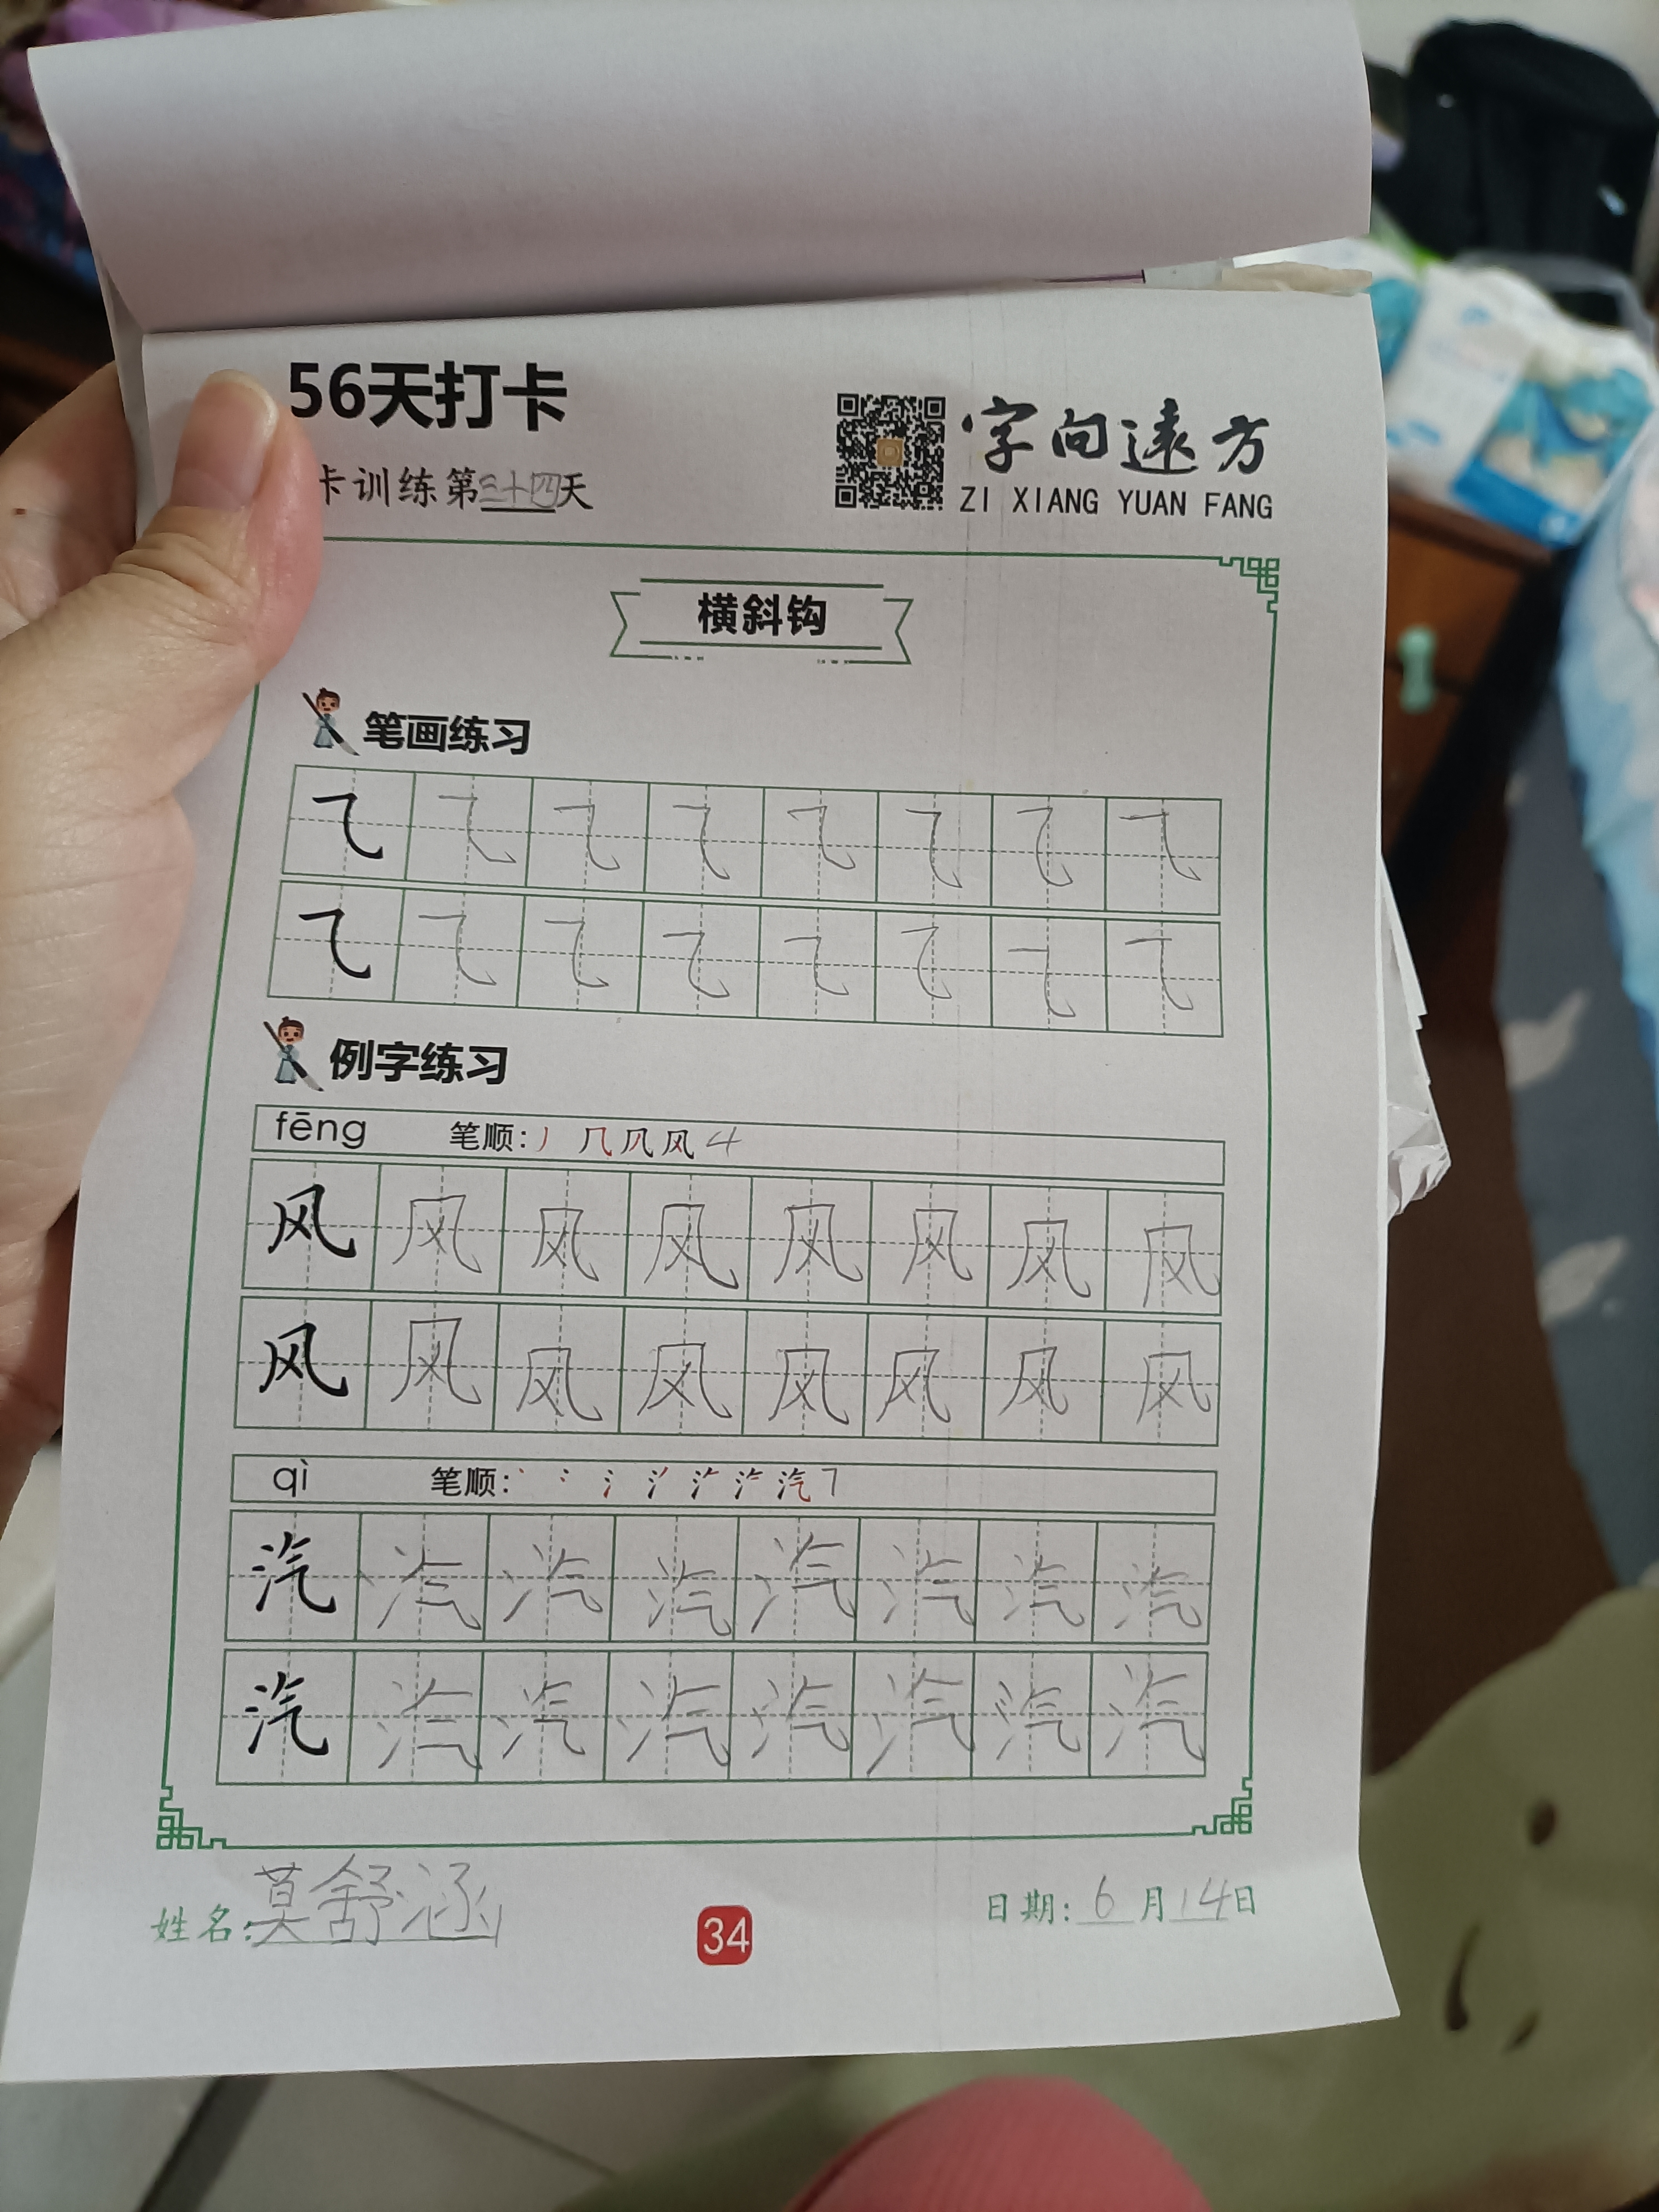 56天打卡
卡训练第三十四天
字向远方
ZI XIANG YUAN FANG
横斜钩
笔画练习
乁 乁 乁 乁 乁 乁 乁 乁
乁 乁 乁 乁 乁 乁 乁 乁
例字练习
fēng 笔顺: 丿 几 凤 风 4
风 风 风 风 风 风 风 风
风 风 风 风 风 风 风 风
qì 笔顺: 汽 7
汽 汽 汽 汽 汽 汽 汽 汽
汽 汽 汽 汽 汽 汽 汽 汽
姓名:莫舒涵
34
日期:6月14日